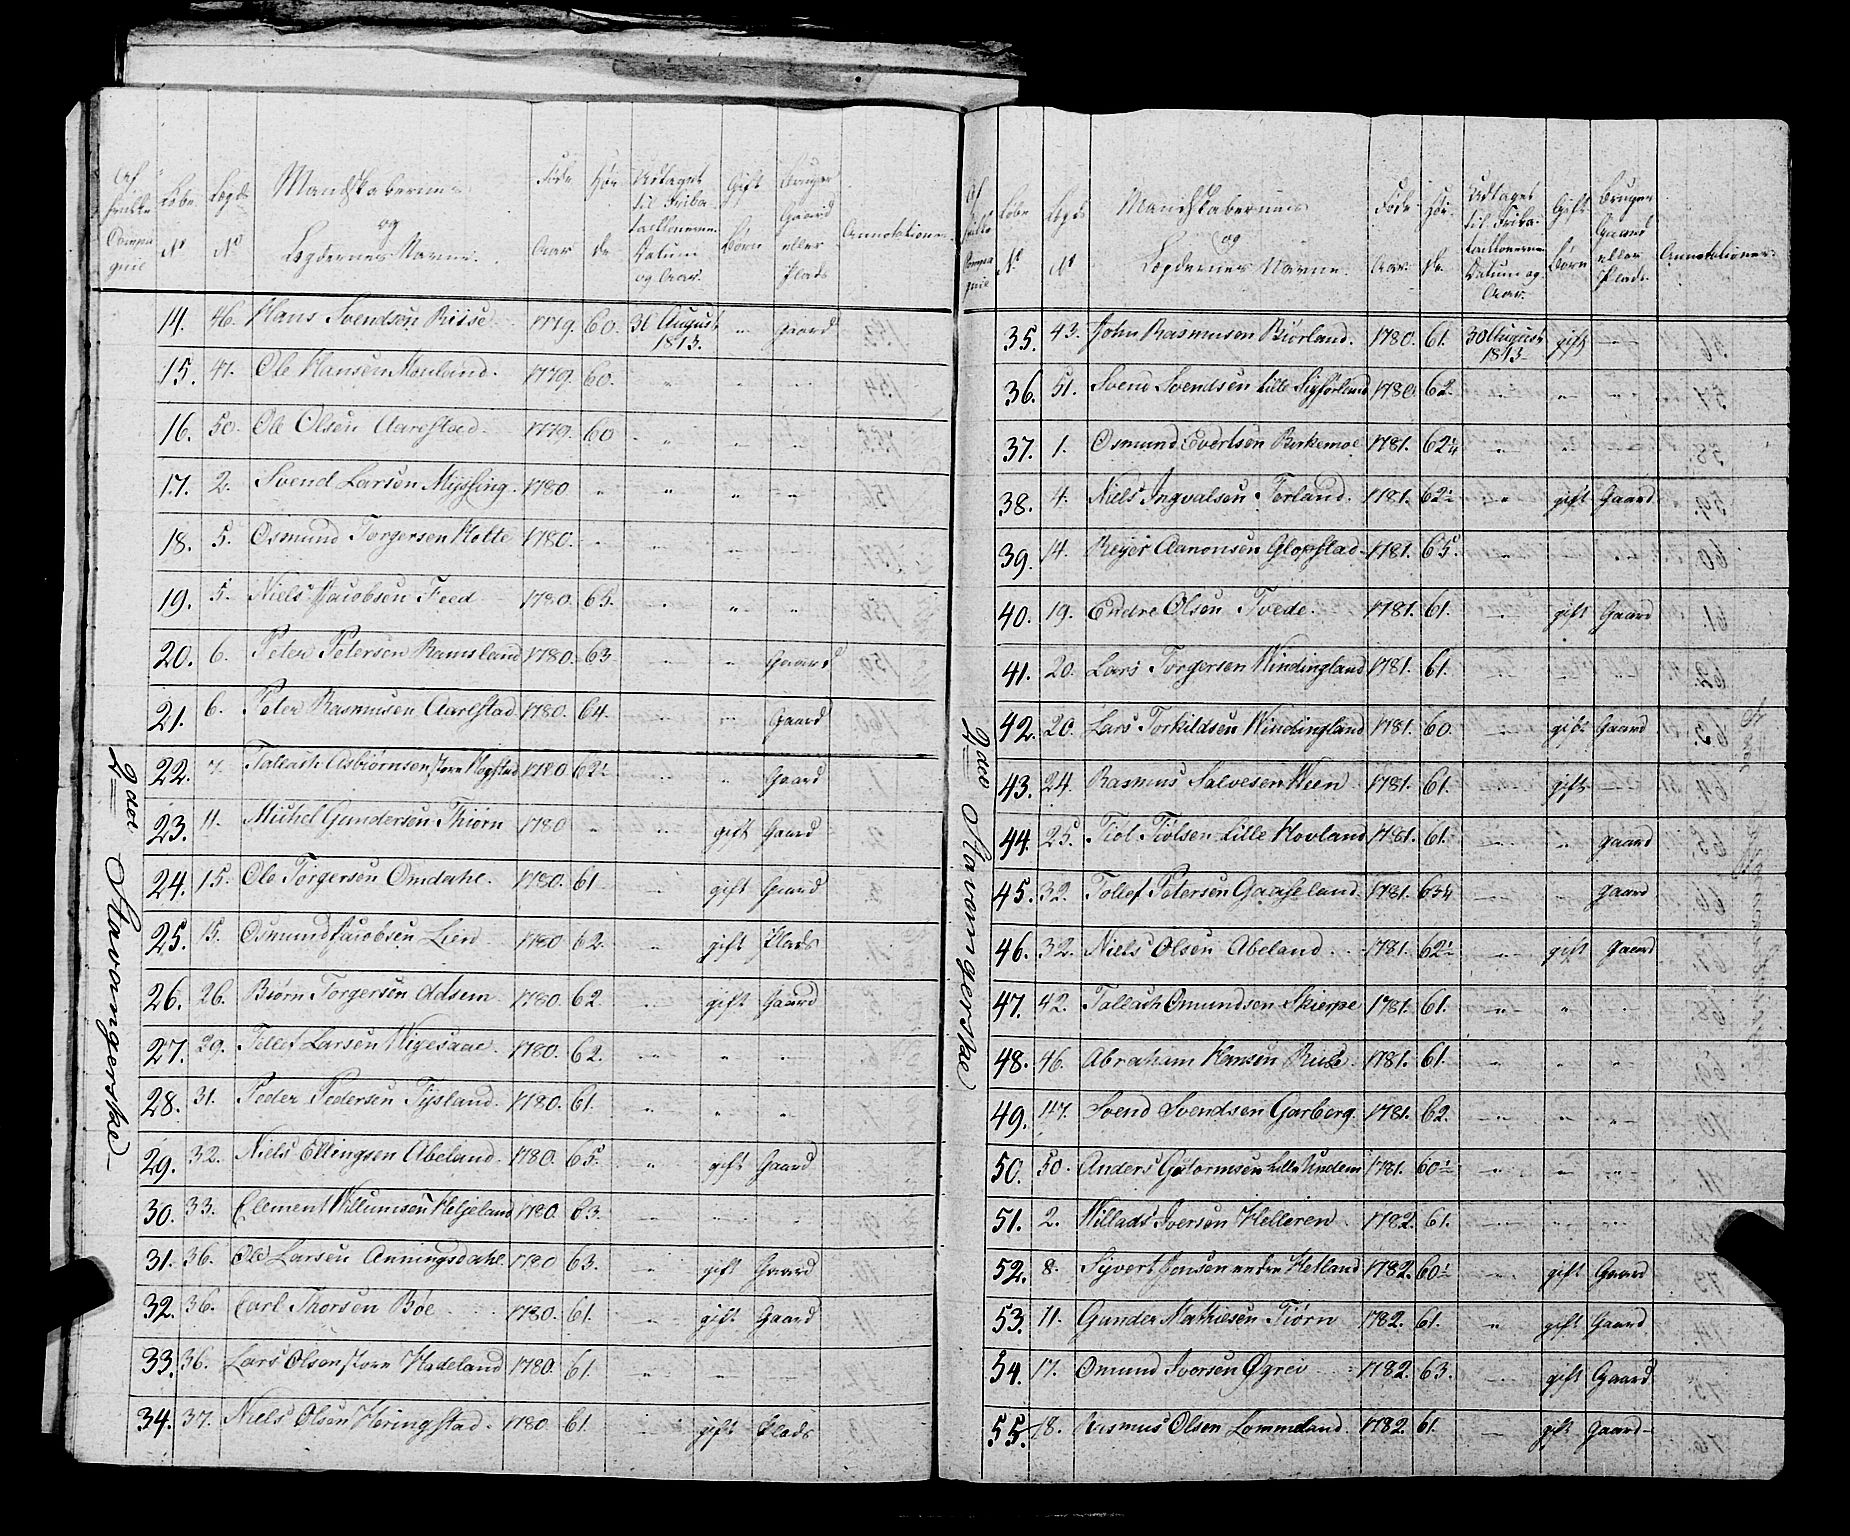 Løbe N° Lægds N° Mandskabernes og Lægdernes Navne. Føde Aar Høi de Udtaget til Friba- taillonerne Datum og Aar. Gift Børn Bruger Gaard eller Plads Annotationer
2den Stavangerske
14. 46. Hans Svendsen Riise 1779. 60. 30 August 1813. " gaard
15. 47. Ole Hansen Houland. 1779. 60. " " "
16. 50. Ole Olsen Aarestad. 1779. 60 " " "
17. 2. Svend Larsen Myssing. 1780 " " " "
18. 5. Osmund Torgersen Holte 1780. " " "
19. 5. Niels Jacobsen Feed 1780. 65. " " "
20. 6. Peter Petersen Ramsland 1780. 63 " " Gaard
21. 6. Peter Rasmusen Aarestad 1780. 64. " " Gaard
22. 7. Tallach Asbiørnsen store Hogstad 1780 62½ " " Gaard
23. 11. Michel Gundersen Thiørn 1780 " " gift Gaard
24. 15. Ole Torgersen Omdahl. 1780. 61 " gift Gaard
25. 15. Osmund Jacobsen Lien 1780 62. " gift Plads
26. 26. Biørn Torgersen Odsem 1780. 62. " gift Gaard
27. 29. Tollef Larsen Wigesaae. 1780. 62. " " "
28. 31. Peder Pedersen Tysland. 1780. 61. " " "
29. 32. Niels Ellingsen Abeland. 1780. 65. " gift Gaard
30. 33. Clement Willumsen Helgeland 1780. 63. " " "
31. 36. Ole Larsen Anningsdahl 1780 63. " gift Gaard
32. 36. Carl Thorsen Bøe 1780. 61. " gift Gaard
33. 36. Lars Olsen store Hadeland 1780. 61. " " "
34. 37. Niels Olsen Heringstad. 1780. 61. " gift Plads
Løbe N° Lægds N° Mandskabernes og Lægdernes Navne. Føde Aar. Høi de Udtaget til Friba- taillonerne Datum og Aar. Gift Børn Bruger Gaard eller Plads. Annotationer.
2den Stavangerske
35. 43. John Rasmusen Biørland. 1780. 61. 30 August 1813 gift "
36. 51. Svend Svendsen Lille Sigforland 1780. 62. " " "
37. 1. Osmund Evertsen Birkemoe 1781. 62¼ " " "
38. 4. Niels Ingvalsen Torland. 1781. 62½ " gift Gaard
39. 14. Reyer Aanonsen Glopstad 1781. 65 " " "
40. 19. Endre Olsen Tvede. 1781. 61. " gift Gaard
41. 20. Lars Torgersen Windingland 1781. 61. " " "
42. 20. Lars Torkildsen Windingland 1781. 60. " gift Gaard
43. 24. Rasmus Salvesen Ween 1781. 61. " gift "
44. 25. Tiøl Tiølsen Lille Hovland 1781. 61. " " gaard
45. 32. Tollef Petersen Gaaseland. 1781. 63½ gaard
46. 32. Niels Olsen Abeland. 1781. 62½ " gift Gaard
47. 42. Tallach Omundsen Skierpe 1781. 61. " " "
48. 46. Abraham Hansen Riise 1781. 61. " " "
49. 47. Svend Svendsen Garberg. 1781. 62. " " "
50. 50. Anders Guttormsen Lille Undem 1781. 60½ " " "
51. 2. Willads Iversen Helleren 1782. 61. " " "
52. 8. Syvert Jonsen nedre Hetland 1782. 60½ " gift Gaard
53. 11. Gunder Mathiesen Tiørn 1782. 61. " gift Gaard
54. 17. Omund Iversen Øgrei 1782. 63. " gift Gaard
55. 18. Rasmus Olsen Lommeland. 1782. 61. " gift Gaard